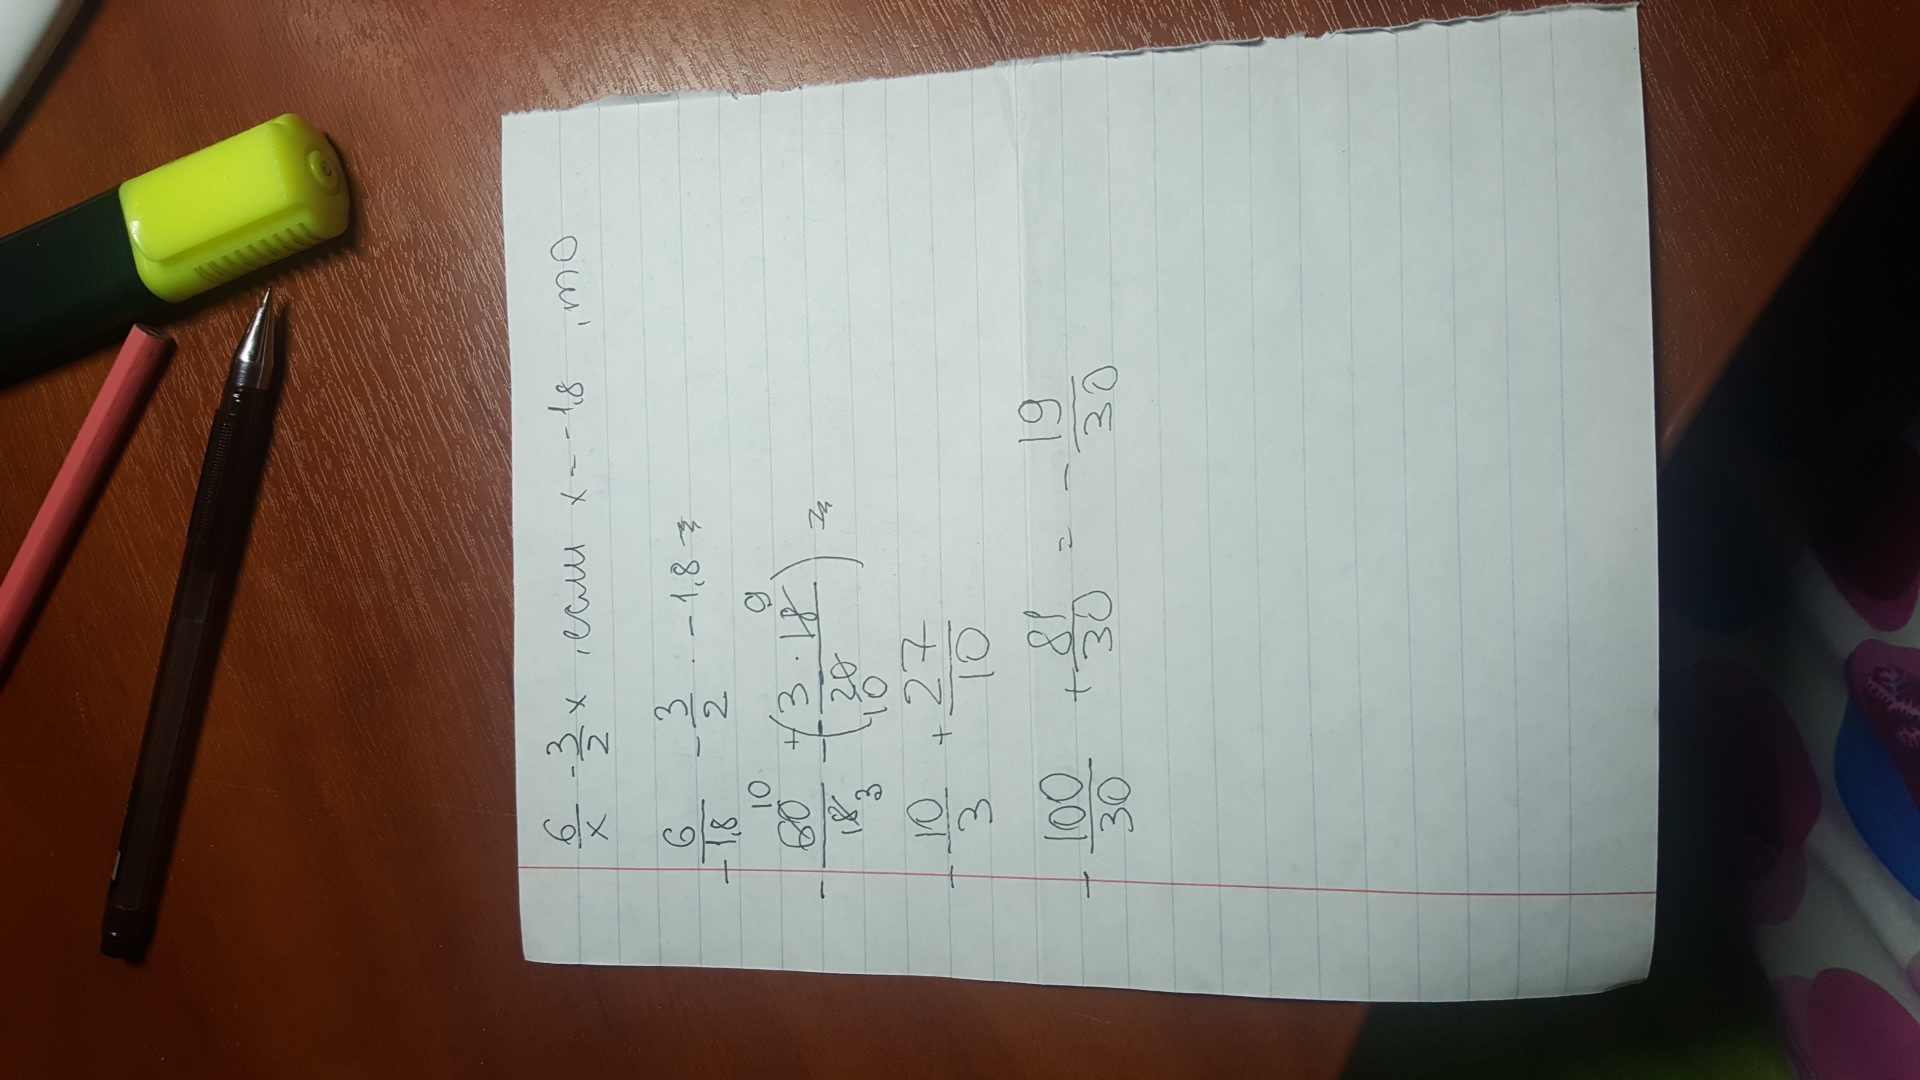 6/x - 3/2 x , если x = -1,8 , то
6/-1,8 - 3/2 · -1,8 =
- 60 10/18 3 + (- 3 · 18 9/20 10) =
- 10/3 + 27/10
- 100/30 + 81/30 = - 19/30